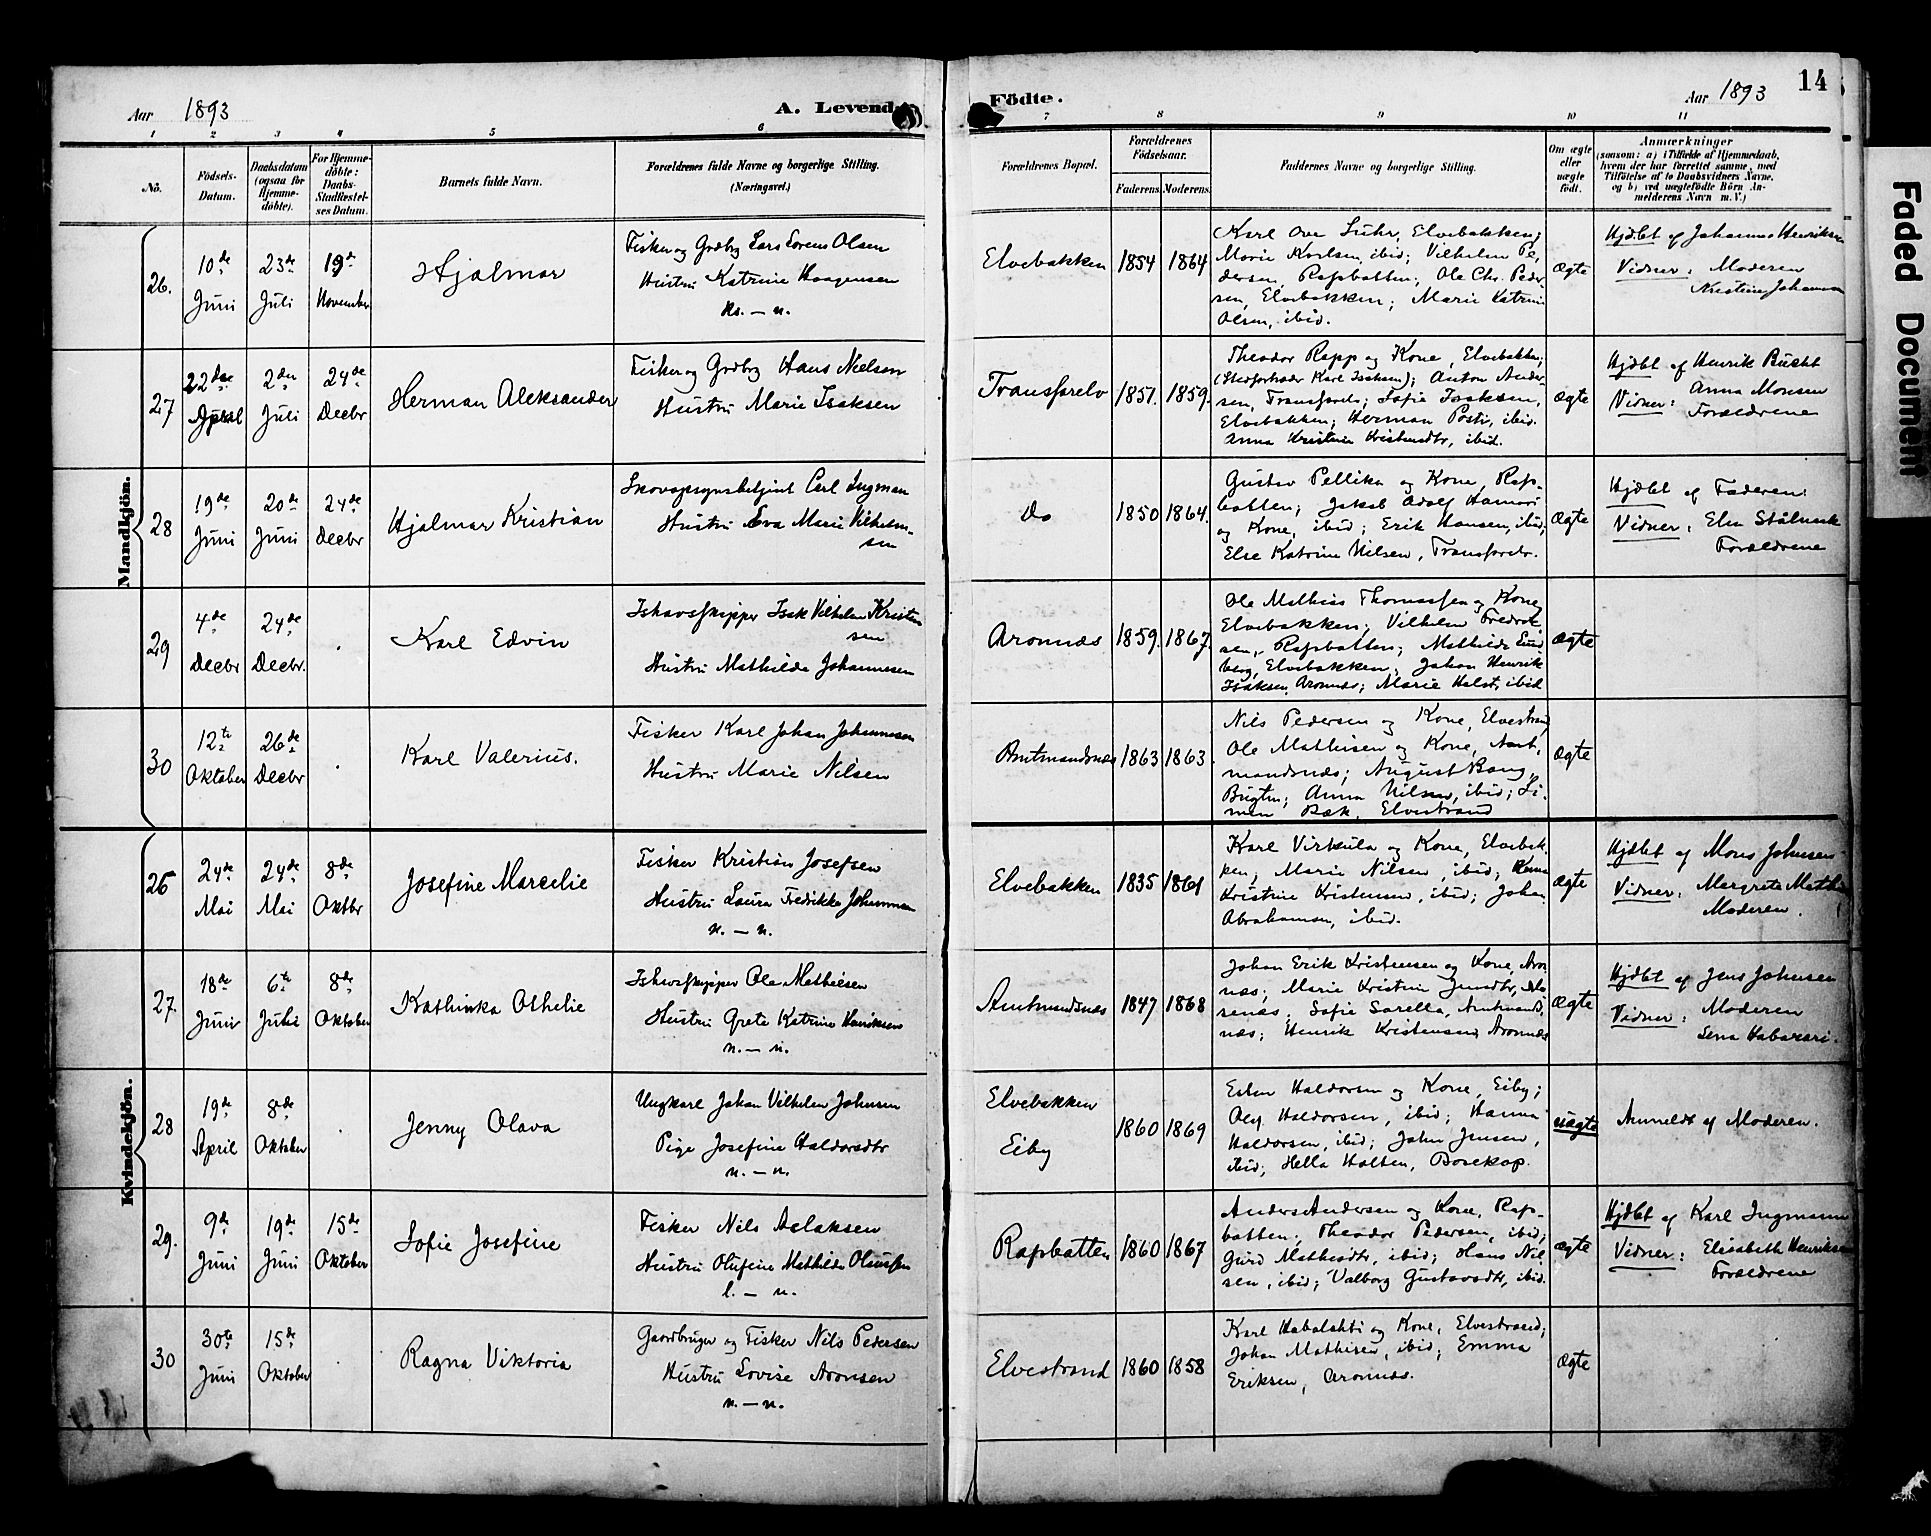 14
Aar 1893
A. Levende
Födte.
Aar 1893
1 2 3 4 5 6 7 8 9 10 11
No.
Födsels-
Datum.
Daabsdatum
(ogsaa for
Hjemme-
döbte).
For Hjemme-
döbte:
Daabs-
Stadfæstel-
ses Datum.
Barnets fulde Navn.
Forældrenes fulde Navne og borgerlige Stilling.
(Næringsvei.)
Forældrenes Bopæl.
Forældrenes
Födselsaar.
Faderens Moderens
Faddernes Navne og borgerlige Stilling.
Om ægte
eller
uægte
født.
Anmærkninger
(saasom: a) i Tilfælde af Hjemmedaab,
hvem der har forrettet samme, med
Tilföielse af to Daabsvidners Navne,
og b) ved uægtefödte Börn An-
melderens Navn m. V.)
Mandkjön.
26.
10de Juni
23de Juli
19de November
Hjalmar
Fisker og Grdbg Lars Lorens Olsen
Hustru Katrine Haagensen
Elvebakken
1854
1864
Karl Ove Suhr, Elvebakken;
Marie Karlsen, ibid; Vilhelm Pe-
dersen, Rafsbatten; Ole Chr. Peder-
sen, Elvebakken; Marie Katrine
Olsen, ibid.
Ægte
Hjdbt af Johanna Henriksen
Vidner: Moderen
Kristine Johansen
27
22de April
2den Juli
24de Decbr
Herman Aleksander
Fisker og Grdbg Hans Nielsen
Hustru Marie Isaksen
Transfarelv
1857.
1859.
Theodor Rapp og Kone, Elvebakken;
(Stedfortræder Karl Isaksen); Anton Ander-
sen, Transfarelv; Sofie Isaksen,
Elvebakken; Herman Posti, ibid.
Anna Kristine Kristensdtr, ibid.
Ægte
Hjdbt af Henrik Bucht
Vidner: Anna Monsen
Forældrene
28
19de Juni
20de Juni
24de Decbr
Hjalmar Kristian
Skovopsynsbetjent Carl Ingman
Hustru Eva Marie Vilhelm-
sen
do
1850
1864.
Gustav Pellika og Kone, Rafs-
batten; Jakob Adolf
og Kone, ibid; Erik Hansen, ibid;
Else Katrine Nilsen, Transfarelv.
Ægte
Hjdbt af Faderen:
Vidner: Elen
Forældrene
29
4de Decbr
24de Decbr.
Karl Edvin
Ishavsskipper Isak Vilhelm Kristen
sen
Hustru Mathilde Johannesen
Aronnæs
1859.
1867.
Ole Mathias Thomassen og Kone,
Elvebakken; Vilhelm Fredrik-
sen, Rafsbatten; Mathilde Lund
berg, Elvebakken; Johan Henrik
Isaksen, Aronnæs; Marie Holst, ibid
Ægte
30
12te Oktober
26de Decbr
Karl Valerius.
Fisker Karl Johan Johannesen
Hustru Marie Nilsen
Amtmandsnæs
1863
1863.
Nils Pedersen og Kone, Elvestrand,
Ole Mathisen og Kone, Amt-
mandsnæs; August Bang,
Bugten; Anna Nilsen, ibid; Si-
men Bæk, Elvestrand
Ægte
Kvindekjön.
26
24de Mai
24de Mai
8de Oktbr
Josefine Marcelie
Fisker Kristian Josefsen
Hustru Laura Fredrikke Johannesen
n. – n.
Elvebakken
1835
1861
Karl Virkula og Kone, Elvebak-
ken; Marie Nilsen, ibid;
Kristine Kristensen, ibid; Johan
Abrahamsen, ibid.
Ægte
Hjdbt af Mons Johnsen
Vidner: Margrete
Moderen.
27.
18de Juni
6te Juli
8de Oktober
Kathinka Othelie
Ishavsskipper Ole Mathiesen
Hustru Grete Katrine Henriksen
n. – n.
Amtmandsnæs
1847
1868
Johan Erik Kristensen og Kone, Aron-
næs; Marie Kristine
Sofie Sarella, Amtmands-
næs; Henrik Kristensen, Aronnæs
Ægte
Hjdbt af Jens Johnsen
Vidner: Moderen
Lena
28
19de April
8de Oktober
Jenny Olava
Ungkarl Johan Vilhelm Johnsen
Pige Josefine Haldorsdtr
n. – n.
Elvebakken
Eiby
1860
1869
Esten Haldorsen og Kone, Eiby;
Oluf Haldorsen, ibid; Hanna
Haldorsen, ibid; John Jensen,
ibid; Hella Holten, Bosekop.
uægte
Anmeldt af Moderen.
29.
9de Juni
19de Juni
15de Oktober
Sofie Josefine
Fisker Nils Aslaksen
Hustru Olufine Mathilde Olaussen
l. – n.
Rafsbatten
1860
1867
Anders Andersen og Kone, Rafs-
batten; Theodor Pedersen, ibid;
Guri Mathisdtr, ibid; Hans Nil-
sen, ibid; Valborg Gustavsdtr, ibid.
Ægte
Hjdbt af Karl Ingmann
Vidner: Elisabeth Henriksen
Forældrene
30
30te Juni
15de Oktober
Ragna Viktoria
Gaardbruger og Fisker Nils Pedersen
Hustru Lovise Aronsen
n. – n.
Elvestrand
1860
1858
Karl Habalahti og Kone, Elvestrand;
Johan Mathisen, ibid; Emma
Eriksen, Aronnæs.
Ægte
Faded Document